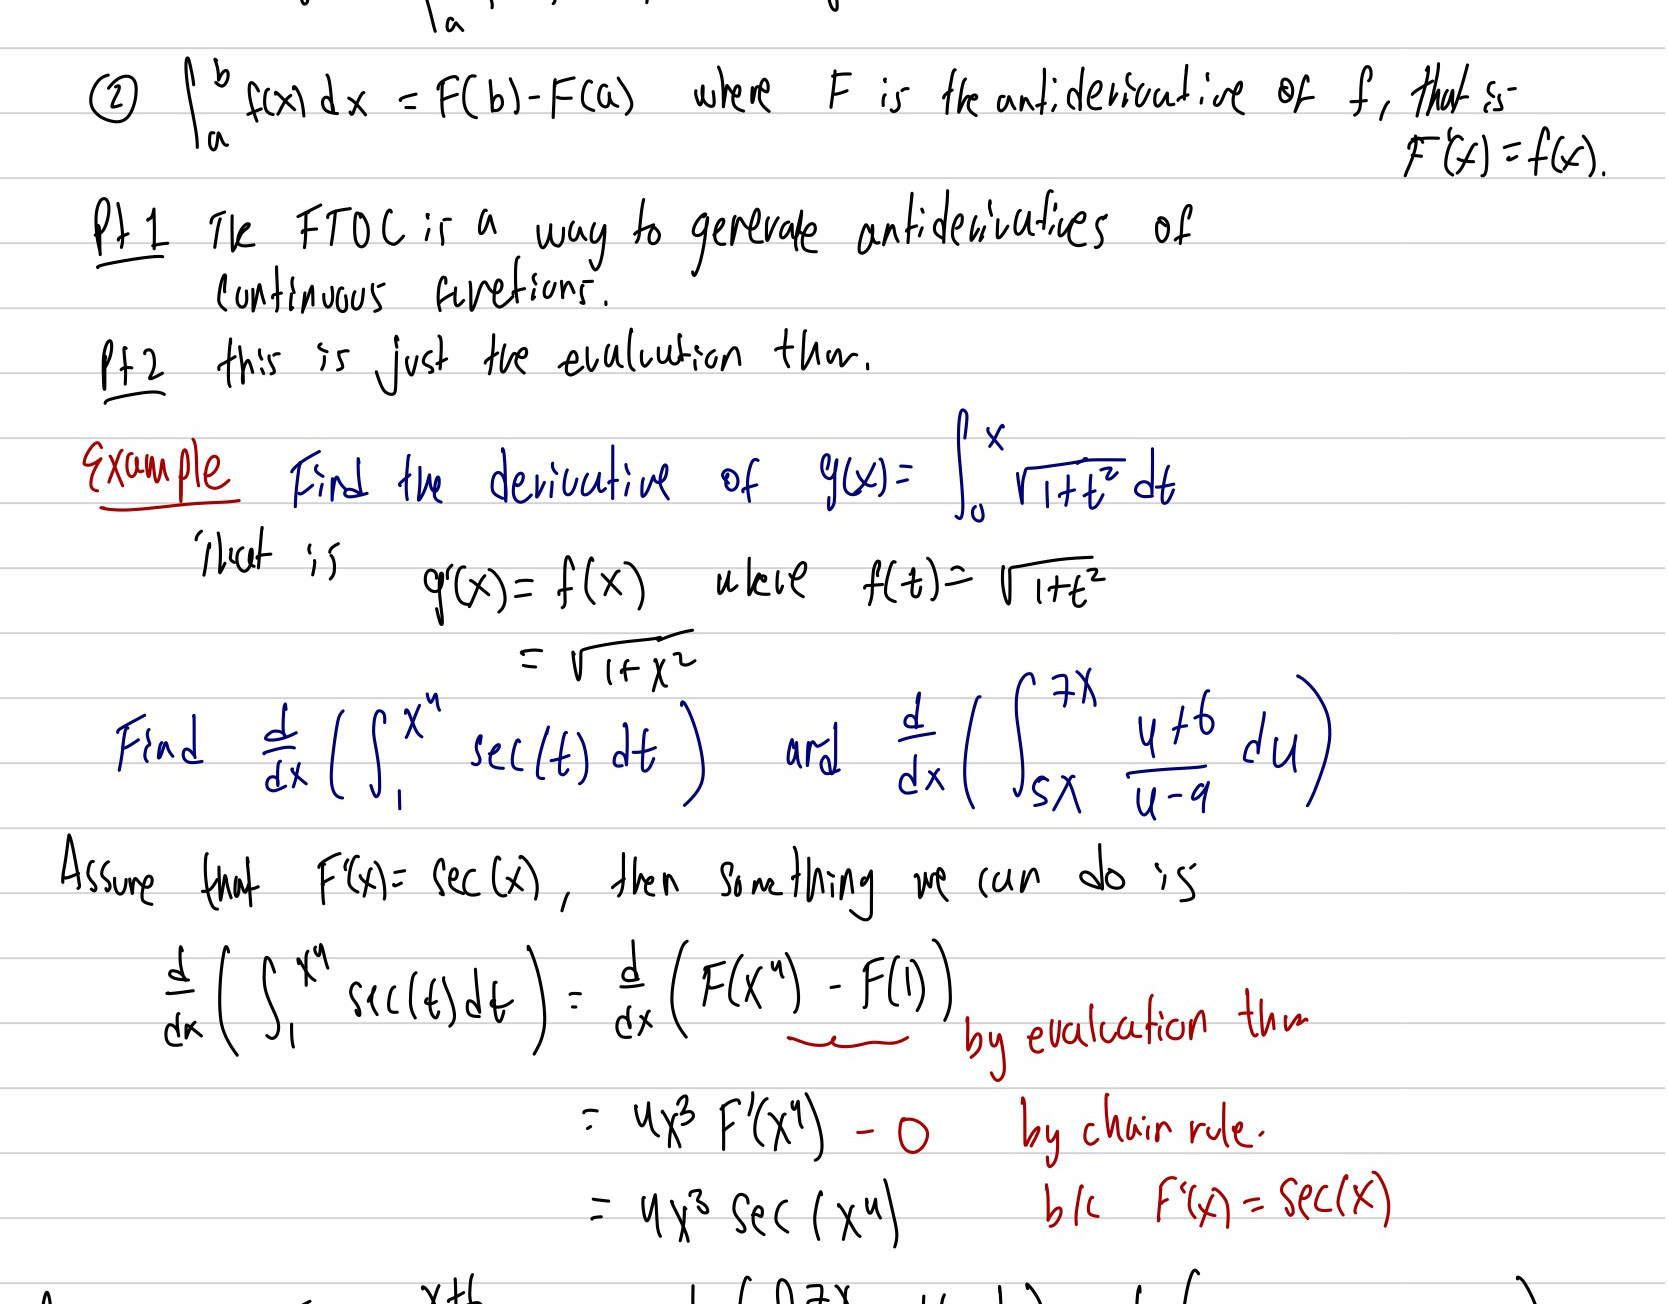 ② ∫_a^b f(x) dx = F(b) - F(a) where F is the antiderivative of f, that is
F'(x) = f(x).
Pt 1 The FTOC is a way to generate antiderivatives of
continuous functions.
Pt 2 this is just the evaluation thm.
Example Find the derivative of g(x) = ∫_0^x √(1+t²) dt
That is
g'(x) = f(x) where f(t) = √(1+t²)
= √(1+x²)
Find d/dx (∫_1^{x⁴} sec(t) dt) and d/dx (∫_{5x}^{7x} (u+6)/(u-9) du)
Assume that F'(x) = sec(x), then something we can do is
d/dx (∫_1^{x⁴} sec(t) dt) = d/dx (F(x⁴) - F(1)) by evaluation thm
= 4x³ F'(x⁴) - 0 by chain rule.
= 4x³ sec(x⁴) b/c F'(x) = sec(x)